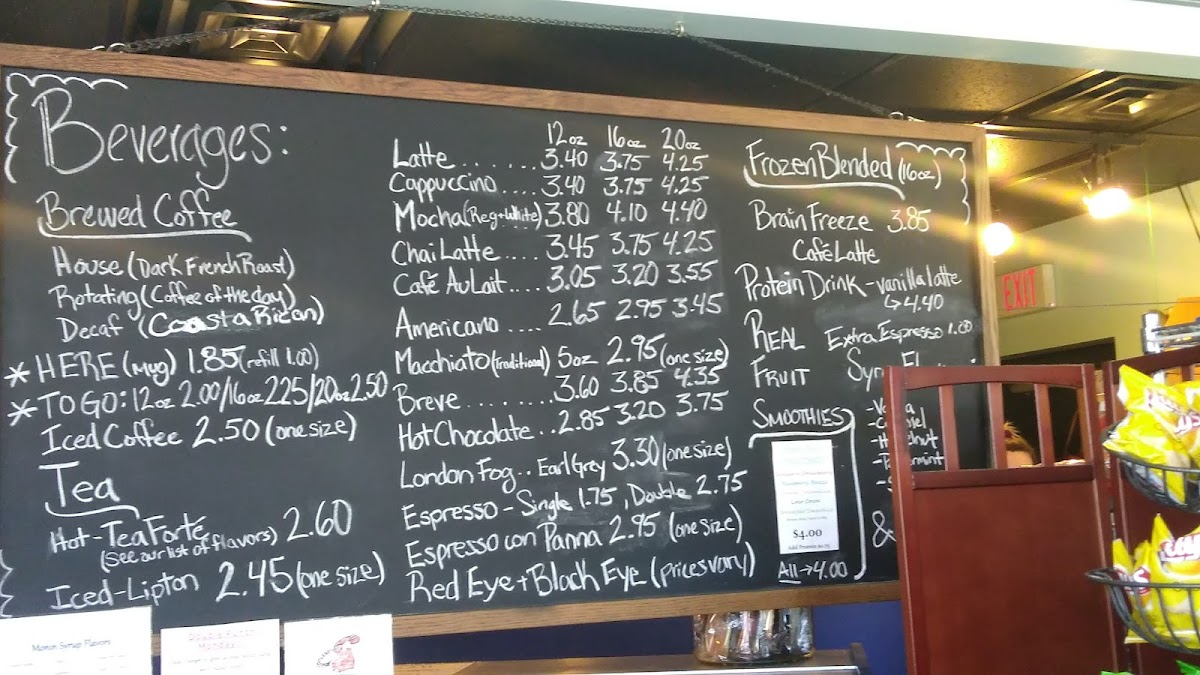 Beverages:
Brewed Coffee
House (Dark French Roast)
Rotating (Coffee of the day)
Decaf (Coasta Rican)
* HERE (mug) 1.85 (refill 1.00)
* TO GO: 12oz 2.00/16oz 2.25/20oz 2.50
Iced Coffee 2.50 (one size)
Tea
Hot - Tea Forté 2.60
(See our list of flavors)
Iced - Lipton 2.45 (one size)
12oz 16oz 20oz
Latte....... 3.40 3.75 4.25
Cappuccino..... 3.40 3.75 4.25
Mocha (Reg + White) 3.80 4.10 4.40
Chai Latte.... 3.45 3.75 4.25
Café Au Lait.... 3.05 3.20 3.55
Americano .... 2.65 2.95 3.45
Macchiato (traditional) 5oz 2.95 (one size)
Breve........ 3.60 3.85 4.35
Hot Chocolate.. 2.85 3.20 3.75
London Fog.. Earl Grey 3.30 (one size)
Espresso - Single 1.75, Double 2.75
Espresso con Panna 2.95 (one size)
Red Eye + Black Eye (prices vary)
Frozen Blended (16oz)
Brain Freeze 3.85
Café Latte
Protein Drink - vanilla latte
↳ 4.40
REAL
FRUIT
SMOOTHIES
$4.00
Add Protein $0.75
All → 4.00
Extra Espresso 1.00
&
EXIT
Monin Syrup Flavors
Double Punch
Monday